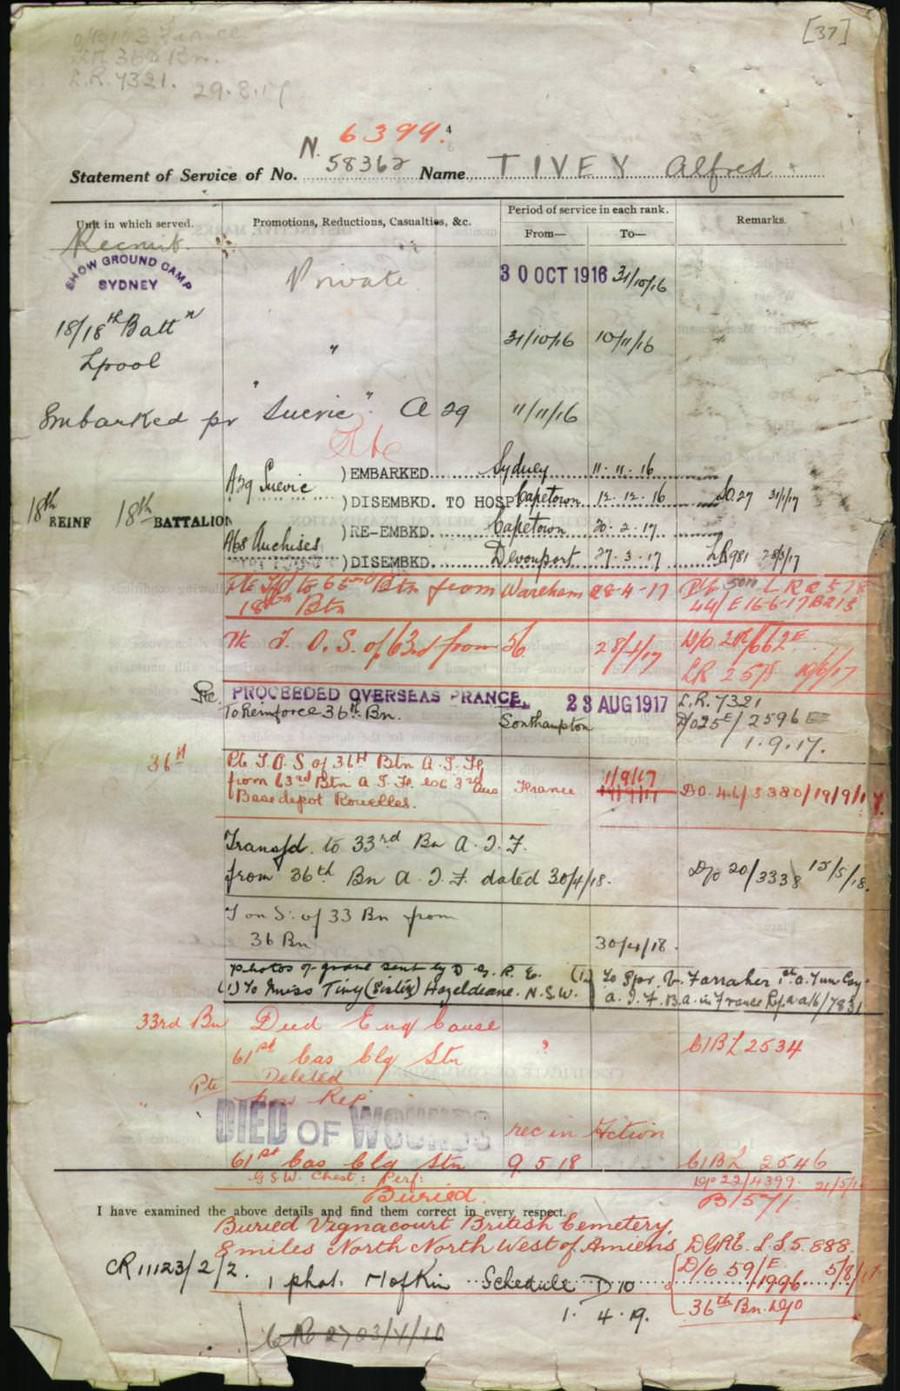 [37]
L.R. 7321. 29.8.17
N. 6394.
Statement of Service of No. 58362 Name TIVEY Alfred
Unit in which served. Promotions, Reductions, Casualties, &c. Period of service in each rank. Remarks.
From— To—
Recruit
SHOW GROUND CAMP
SYDNEY
Private 30 OCT 1916 31/10/16
18/18th Battn " 31/10/16 10/11/16
Lpool
Embarked pr "Suevic" A 29 11/11/16
Pte
A29 Suevic ) EMBARKED Sydney 11.11.16
) DISEMBKD. TO HOSP Capetown 12.12.16 31/1/17
18th REINF 18th BATTALION
) RE-EMBKD. Capetown 20.2.17
A68 Anchises ) DISEMBKD. Devonport 27.3.17
Pte Tfd to 62nd Btn from Wareham 28-4-17
18th Btn 44/E 16-6-17 B213
T. O. S. of 63rd from 28/4/17
LR 19/6/17
Pte PROCEEDED OVERSEAS FRANCE, 23 AUG 1917 L.R. 7321
To Reinforce 36th Bn. Southampton D/O 25E/2596
1.9.17.
36th Pte T.O.S of 36th Btn A.I.F. 1/9/17
from 63rd Btn A.I.F. France 19/9/17 DO. 46/3380/19/9/17
Base depot Rouelles.
Transfd. to 33rd Bn A.I.F.
from 36th Bn A.I.F. dated 30/4/18. D/o 20/3338 15/5/18.
T on S. of 33 Bn from
36 Bn 30/4/18.
Photos of grave sent by D.G.R.E. (1.) To Spr. Farraher 1st A. Tun Coy.
(1.) To Miss Tivy (Sister) Hazeldeane. N.S.W. A.I.F. B.a. in France
33rd Bn Died Enq Cause ?
61st Cas Clg Stn C1BL 2534
Deleted
Pte per Rep
DIED OF WOUNDS rec in Action
61st Cas Clg Stn 9 5 18 C1BL 2546
G.S.W. Chest: Perf: 22/4399
Buried. B1571
I have examined the above details and find them correct in every respect.
Buried Vignacourt British Cemetery,
8 miles North North West of Amiens DGRE. L.S. 5.888.
CR 11123/2/2. D/O 59/E/1996 5/8/17
1 phot. Schedule D10
1.4.19. 36th Bn. D/o